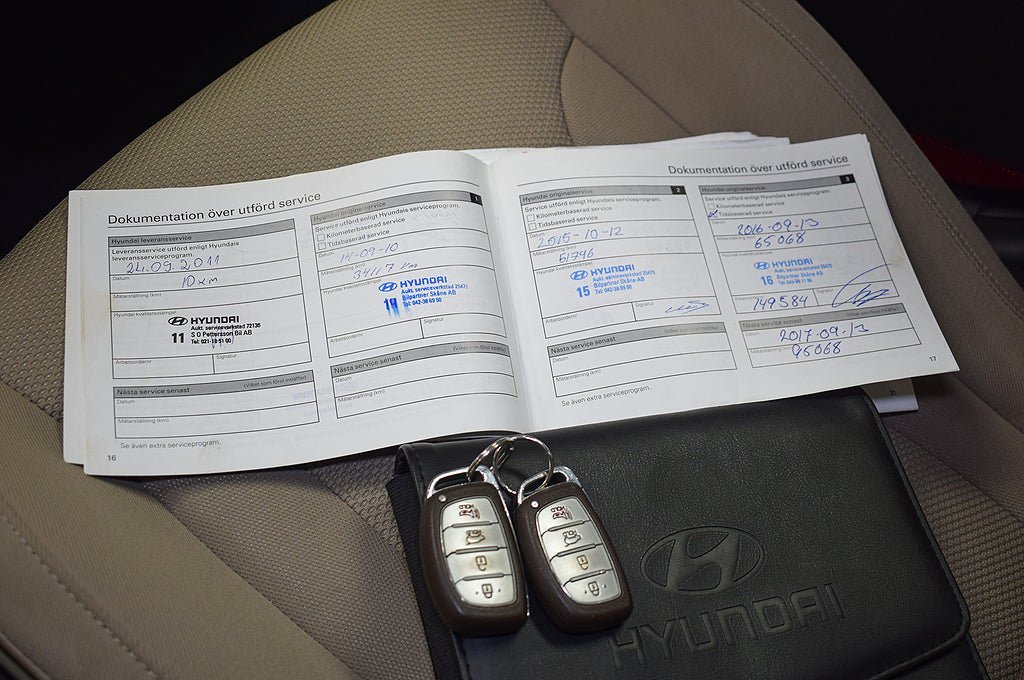 Dokumentation över utförd service
Hyundai leveransservice
Leveransservice utförd enligt Hyundais
leveransserviceprogram.
Datum
21.09.2011
10 km
Mätarställning (km)
Hyundai kvalitetsstämpel
HYUNDAI
Aukt. serviceverkstad 72136
11 S O Pettersson Bil AB
Tel: 021-38 51 00
Arbetsordernr
Signatur
Nästa service senast (Vilket som först inträffar)
Datum
Mätarställning (km)
Se även extra serviceprogram.
16
Hyundai originalservice 1
Service utförd enligt Hyundais serviceprogram.
Kilometerbaserad service
Tidsbaserad service
Datum
14-09-10
Mätarställning (km)
34117 km
Hyundai kvalitetsstämpel
HYUNDAI
Aukt. serviceverkstad 25475
Bilpartner Skåne AB
Tel: 042-38 89 50
Arbetsordernr
Signatur
Nästa service senast (Vilket som först inträffar)
Datum
Mätarställning (km)
Dokumentation över utförd service
Hyundai originalservice 2
Service utförd enligt Hyundais serviceprogram.
Kilometerbaserad service
Tidsbaserad service
Datum
2015-10-12
Mätarställning (km)
51796
Hyundai kvalitetsstämpel
HYUNDAI
Aukt. serviceverkstad 25475
15 Bilpartner Skåne AB
Tel: 042-38 89 50
Arbetsordernr
Signatur
Nästa service senast (Vilket som först inträffar)
Datum
Mätarställning (km)
Se även extra serviceprogram.
Hyundai originalservice 3
Service utförd enligt Hyundais serviceprogram.
Kilometerbaserad service
Tidsbaserad service
Datum
2016-09-13
Mätarställning (km)
65068
Hyundai kvalitetsstämpel
HYUNDAI
Aukt. serviceverkstad 25475
16 Bilpartner Skåne AB
Arbetsordernr
149584
Signatur
Nästa service senast (Vilket som först inträffar)
Datum
2017-09-13
Mätarställning (km)
95068
17
21
HOLD
HOLD
HYUNDAI